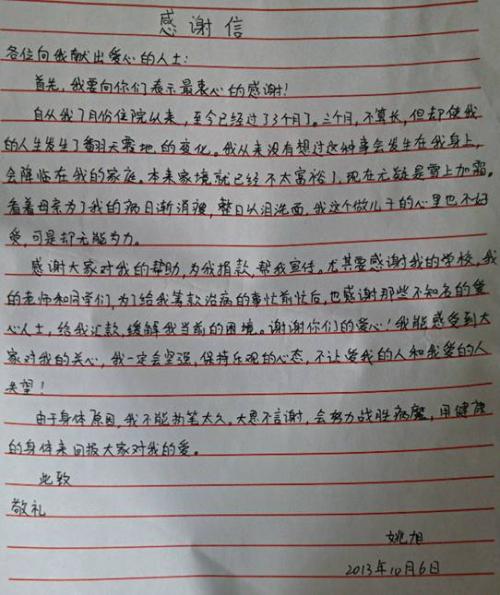 感谢信
各位向我献出爱心的人士:
首先,我要向你们表示最衷心的感谢!
自从我7月份住院以来,至今已经过了3个月了。三个月,不算长,但却使我
的人生发生了翻天覆地的变化。我从来没有想过这种事会发生在我身上,
会降临在我的家庭。本来家境就已经不太富裕了,现在无疑是雪上加霜。
看着母亲为了我的病日渐消瘦,整日以泪洗面,我这个做儿子的心里也不好
受,可是却无能为力。
感谢大家对我的帮助,为我捐款,帮我宣传。尤其要感谢我的学校,我
的老师和同学们,为了给我筹款治病的事忙前忙后,也感谢那些不知名的爱
心人士,给我汇款,缓解我当前的困境。谢谢你们的爱心!我能感受到大
家对我的关心,我一定会坚强,保持乐观的心态,不让爱我的人和我爱的人
失望!
由于身体原因,我不能执笔太久。大恩不言谢,会努力战胜病魔,用健康
的身体来回报大家对我的爱。
此致
敬礼
姚旭
2013年10月6日